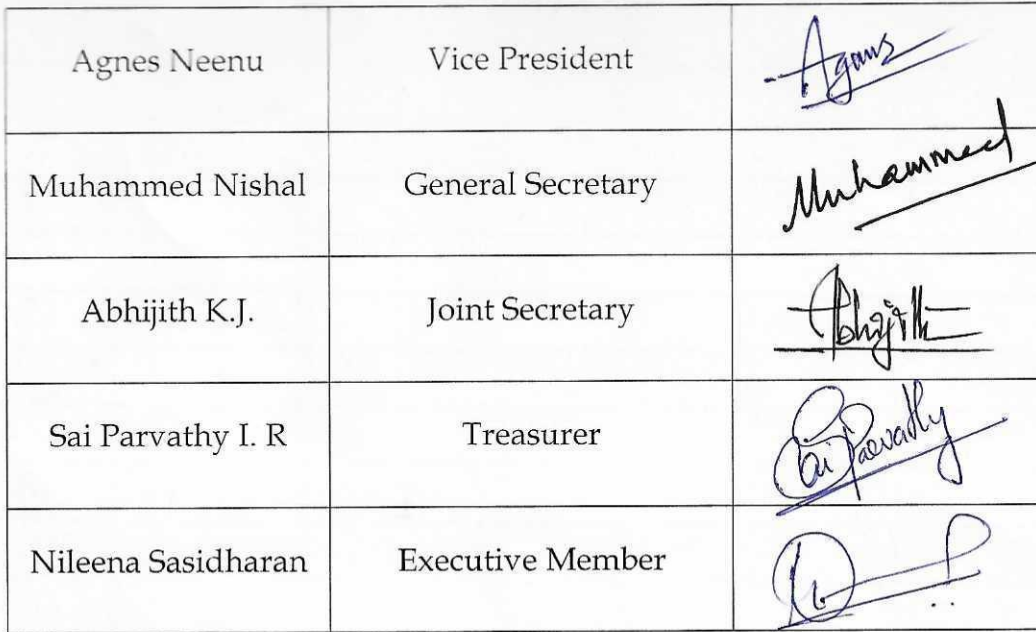 Agnes Neenu Vice President Agnes
Muhammed Nishal General Secretary Muhammed
Abhijith K.J. Joint Secretary Abhijith
Sai Parvathy I. R Treasurer Sai Parvathy
Nileena Sasidharan Executive Member